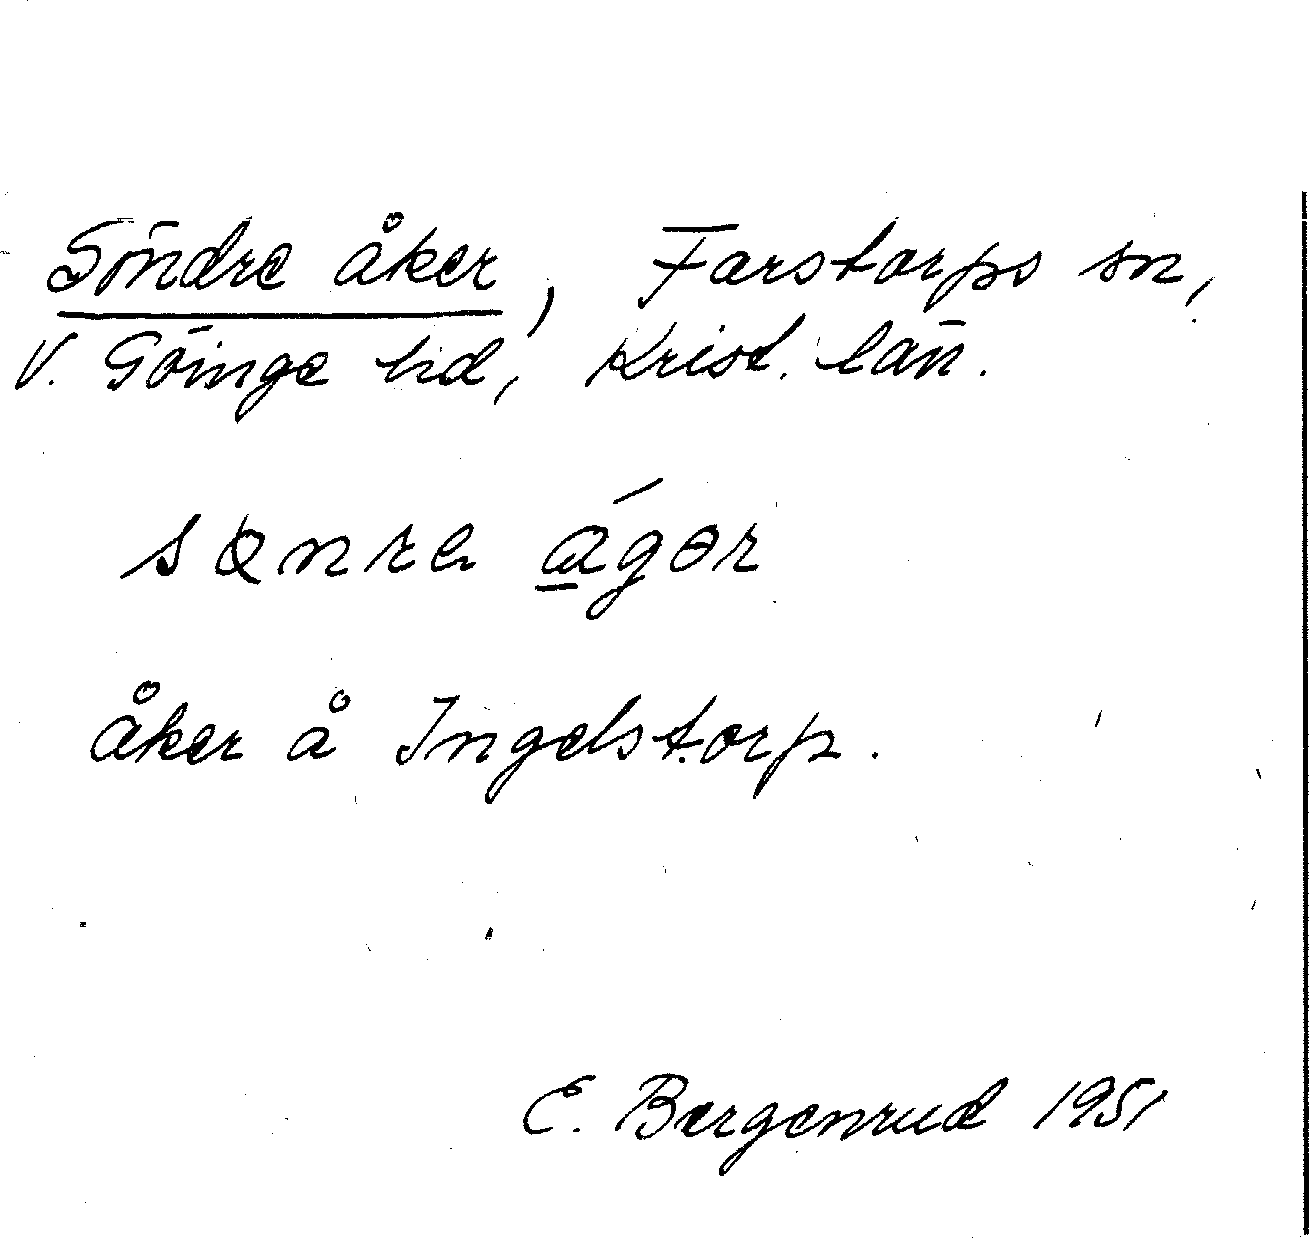 Söndre åker, Farstorps sn,
V. Göinge hd, Krist. län.
sønra ágər
åker å Ingelstorp.
E. Bergenrud 1951